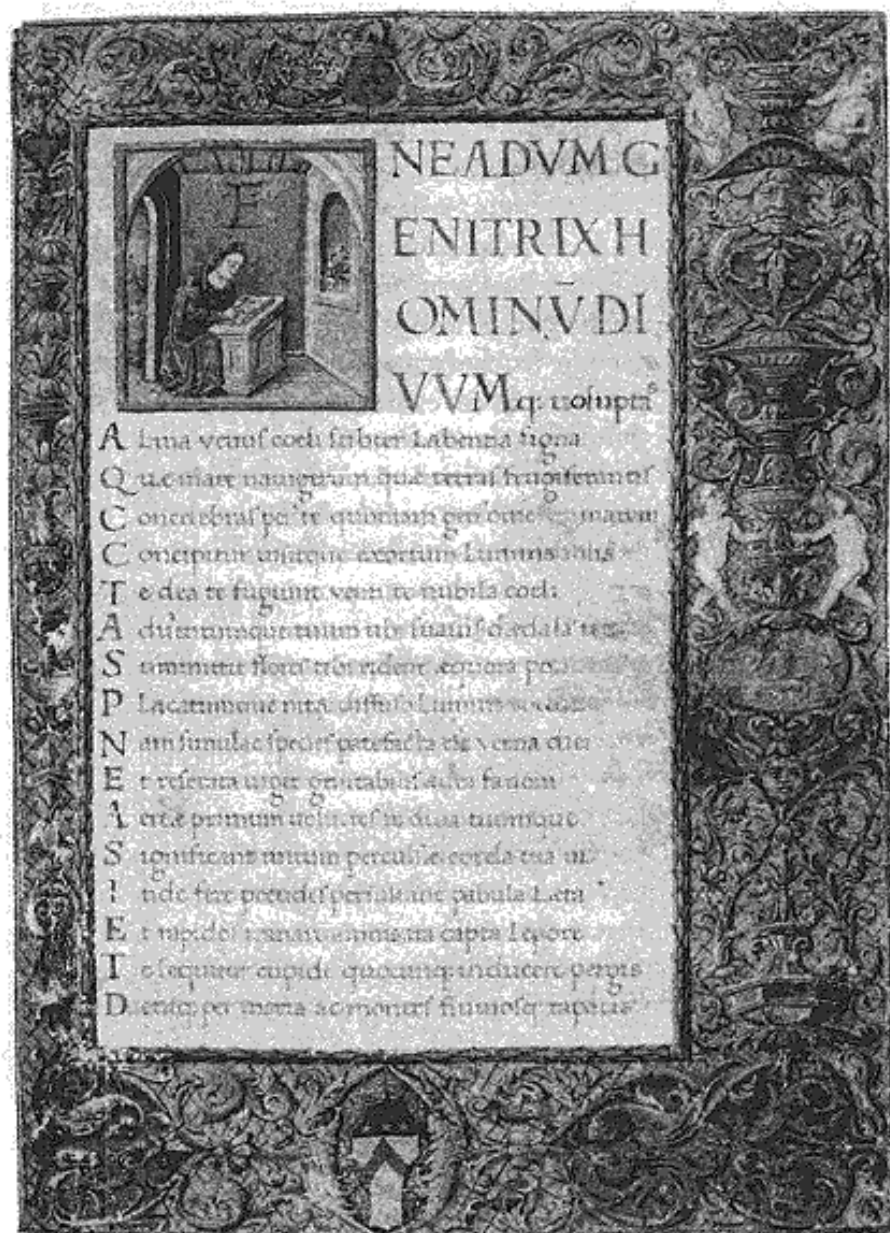 E
NEADVM G
ENITRIX H
OMINV̄ DI
VVM q: uoluptaˢ
A lma venus coeli subter Labentia signa
Q uæ mare nauigerum quæ terras frugiferentis
C oncelebras per te quoniam gen' omne animantum
C oncipitur uisitque exortum Luminis
T e dea te fugiunt venti te nubila coeli
A duentumque tuum tibi suauis dædala
S ummittit flores tibi rident æquora
P Lacatumque nitet diffuso Lumine
N am simulac species patefacta est verna diei
E t reserata uiget genitabilis aura fauoni
A eriæ primum uolucres te diua tuumque
S ignificant initum perculsæ corda tua ui
I nde feræ pecudes persultant pabula Læta
E t rapidos tranant amnis ita capta Lepore
T e sequitur cupide quocunq: inducere pergis
D eniq: per maria ac montes fluuiosq: rapacis